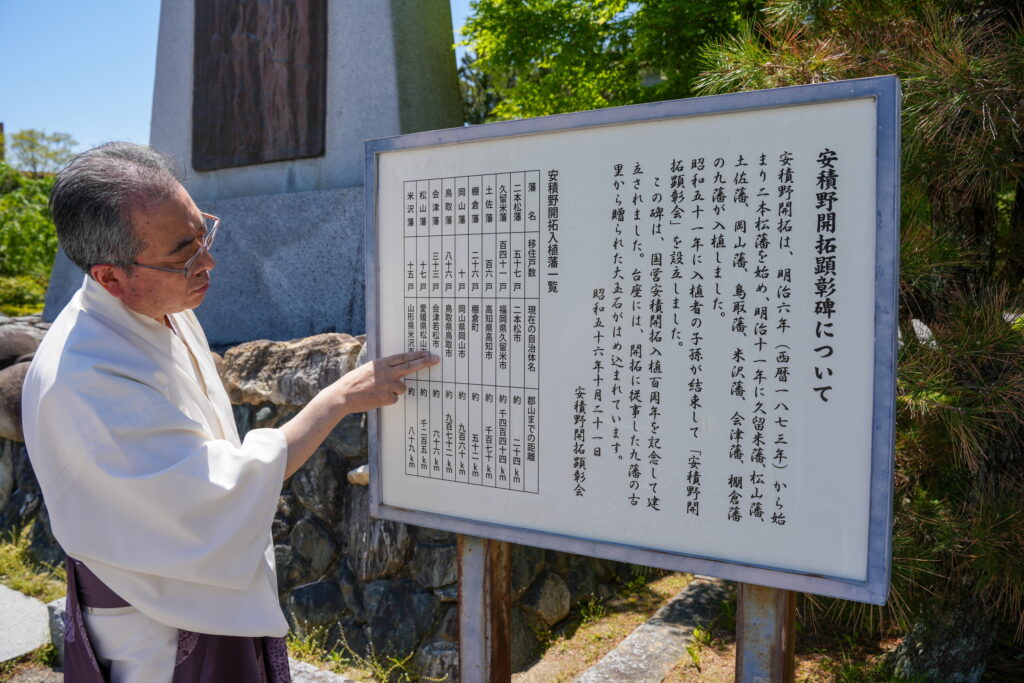 安積野開拓顕彰碑について
安積野開拓は、明治六年（西暦一八七三年）から始
まり二本松藩を始め、明治十一年に久留米藩、松山藩、
土佐藩、岡山藩、鳥取藩、米沢藩、会津藩、棚倉藩
の九藩が入植しました。
昭和五十一年に入植者の子孫が結束して「安積野開
拓顕彰会」を設立しました。
この碑は、国営安積開拓入植百周年を記念して建
立されました。台座には、開拓に従事した九藩の古
里から贈られた大玉石がはめ込まれています。
昭和五十六年十月二十一日
安積野開拓顕彰会
安積野開拓入植藩一覧
藩名 移住戸数 現在の自治体名 郡山までの距離
二本松藩 五十七戸 二本松市 約 二十四km
久留米藩 百四十一戸 福岡県久留米市 約 千四百四十km
土佐藩 百六戸 高知県高知市 約 千百七十km
棚倉藩 二十六戸 棚倉町 約 五十二km
岡山藩 十戸 岡山県岡山市 約 九百六十km
鳥取藩 八十六戸 鳥取県鳥取市 約 九百七十二km
会津藩 三十三戸 会津若松市 約 六十六km
松山藩 十七戸 愛媛県松山市 約 千二百五km
米沢藩 十五戸 山形県米沢 約 八十九km